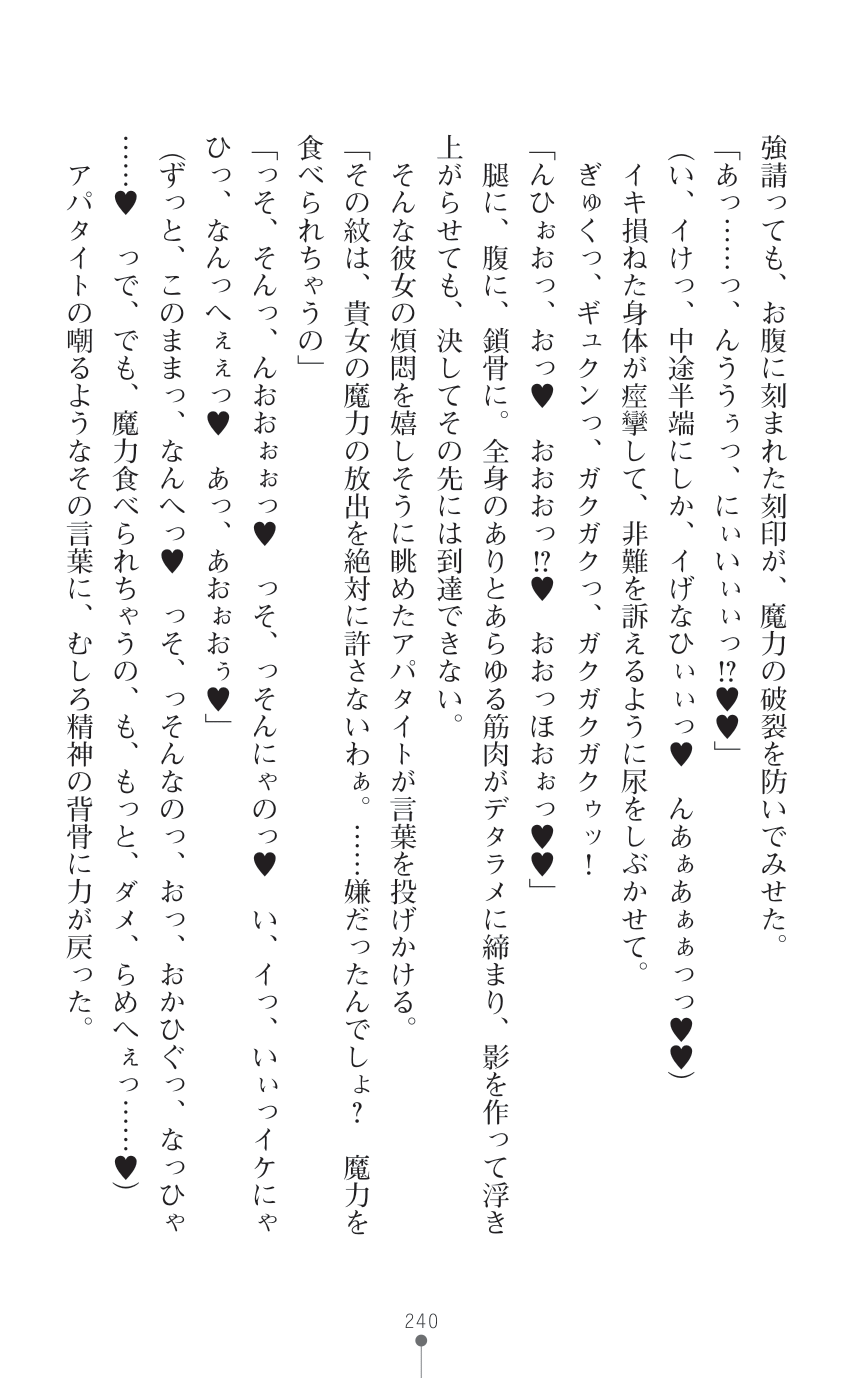 強請っても、お腹に刻まれた刻印が、魔力の破裂を防いでみせた。
「あっ……っ、んううぅっ、にぃいぃぃっ!?♥♥」
(い、イけっ、中途半端にしか、イげなひぃぃっ♥　んあぁあぁぁっっ♥♥)
イキ損ねた身体が痙攣して、非難を訴えるように尿をしぶかせて。
ぎゅくっ、ギュクンっ、ガクガクっ、ガクガクガクゥッ！
「んひぉおっ、おっ♥　おおおっ!?♥　おおっほおぉっ♥♥」
腿に、腹に、鎖骨に。全身のありとあらゆる筋肉がデタラメに締まり、影を作って浮き
上がらせても、決してその先には到達できない。
そんな彼女の煩悶を嬉しそうに眺めたアパタイトが言葉を投げかける。
「その紋は、貴女の魔力の放出を絶対に許さないわぁ。……嫌だったんでしょ？　魔力を
食べられちゃうの」
「っそ、そんっ、んおおぉぉっ♥　っそ、っそんにゃのっ♥　い、イっ、いぃっイケにゃ
ひっ、なんっへぇぇっ♥　あっ、あおぉおぅ♥」
(ずっと、このままっ、なんへっ♥　っそ、っそんなのっ、おっ、おかひぐっ、なっひゃ
……♥　っで、でも、魔力食べられちゃうの、も、もっと、ダメ、らめへぇっ……♥)
アパタイトの嘲るようなその言葉に、むしろ精神の背骨に力が戻った。
240